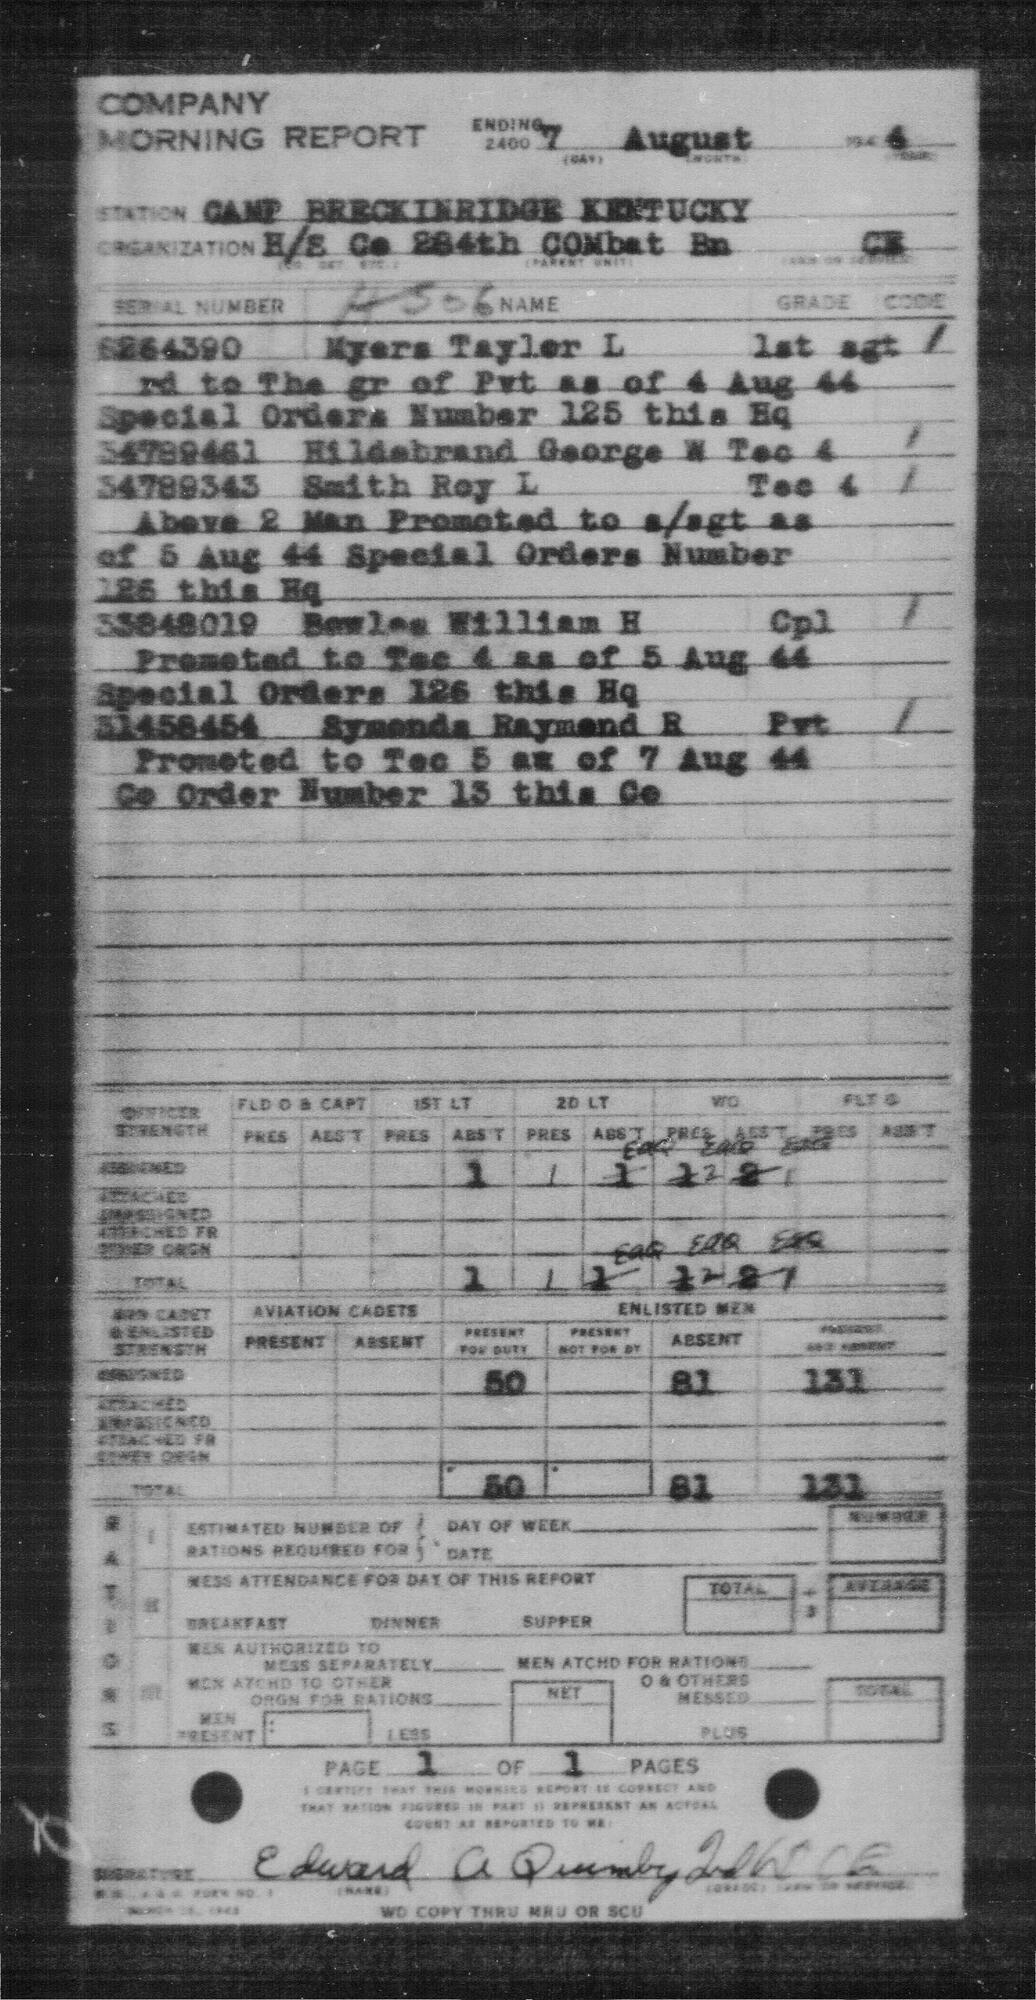 COMPANY
MORNING REPORT ENDING 2400 7 August 194 4
(DAY) (MONTH) (YEAR)
STATION CAMP BRECKINRIDGE KENTUCKY
ORGANIZATION H/S Co 284th COMbat Bn CE
(CO. DET. ETC.) (PARENT UNIT) (ARM OR SERVICE)
SERIAL NUMBER NAME GRADE CODE
6264390 Myers Tayler L 1st sgt /
rd to The gr of Pvt as of 4 Aug 44
Special Orders Number 125 this Hq
34789461 Hildebrand George W Tec 4 /
34789343 Smith Roy L Tec 4 /
Above 2 Man Promoted to s/sgt as
of 5 Aug 44 Special Orders Number
126 this Hq
33848019 Bowles William H Cpl /
Promoted to Tec 4 as of 5 Aug 44
Special Orders 126 this Hq
31458454 Symonds Raymond R Pvt /
Promoted to Tec 5 as of 7 Aug 44
Co Order Number 13 this Co
OFFICER STRENGTH FLD O & CAPT 1ST LT 2D LT WO FLT O
PRES ABS'T PRES ABS'T PRES ABS'T PRES ABS'T PRES ABS'T
EAQ EAQ EAQ
ASSIGNED 1 1 1 1 2 2 1
ATTACHED UNASSIGNED
ATTACHED FR OTHER ORGN
EAQ EAQ EAQ
TOTAL 1 1 1 1 2 2 1
AVN CADET & ENLISTED STRENGTH AVIATION CADETS ENLISTED MEN
PRESENT ABSENT PRESENT FOR DUTY PRESENT NOT FOR DY ABSENT PRESENT AND ABSENT
ASSIGNED 50 81 131
ATTACHED UNASSIGNED
ATTACHED FR OTHER ORGN
TOTAL 50 81 131
RATIONS
I ESTIMATED NUMBER OF RATIONS REQUIRED FOR DAY OF WEEK DATE NUMBER
II MESS ATTENDANCE FOR DAY OF THIS REPORT TOTAL ÷ 3 AVERAGE
BREAKFAST DINNER SUPPER
III MEN AUTHORIZED TO MESS SEPARATELY MEN ATCHD FOR RATIONS
MEN ATCHD TO OTHER ORGN FOR RATIONS NET O & OTHERS MESSED TOTAL
MEN PRESENT LESS PLUS
PAGE 1 OF 1 PAGES
I CERTIFY THAT THIS MORNING REPORT IS CORRECT AND
THAT RATION FIGURES IN PART II REPRESENT AN ACTUAL
COUNT AS REPORTED TO ME:
SIGNATURE Edward A Quimby 2nd Lt CE
(NAME) (GRADE) (ARM OR SERVICE)
W.D., A.G.O. FORM NO. 1
WD COPY THRU MRU OR SCU